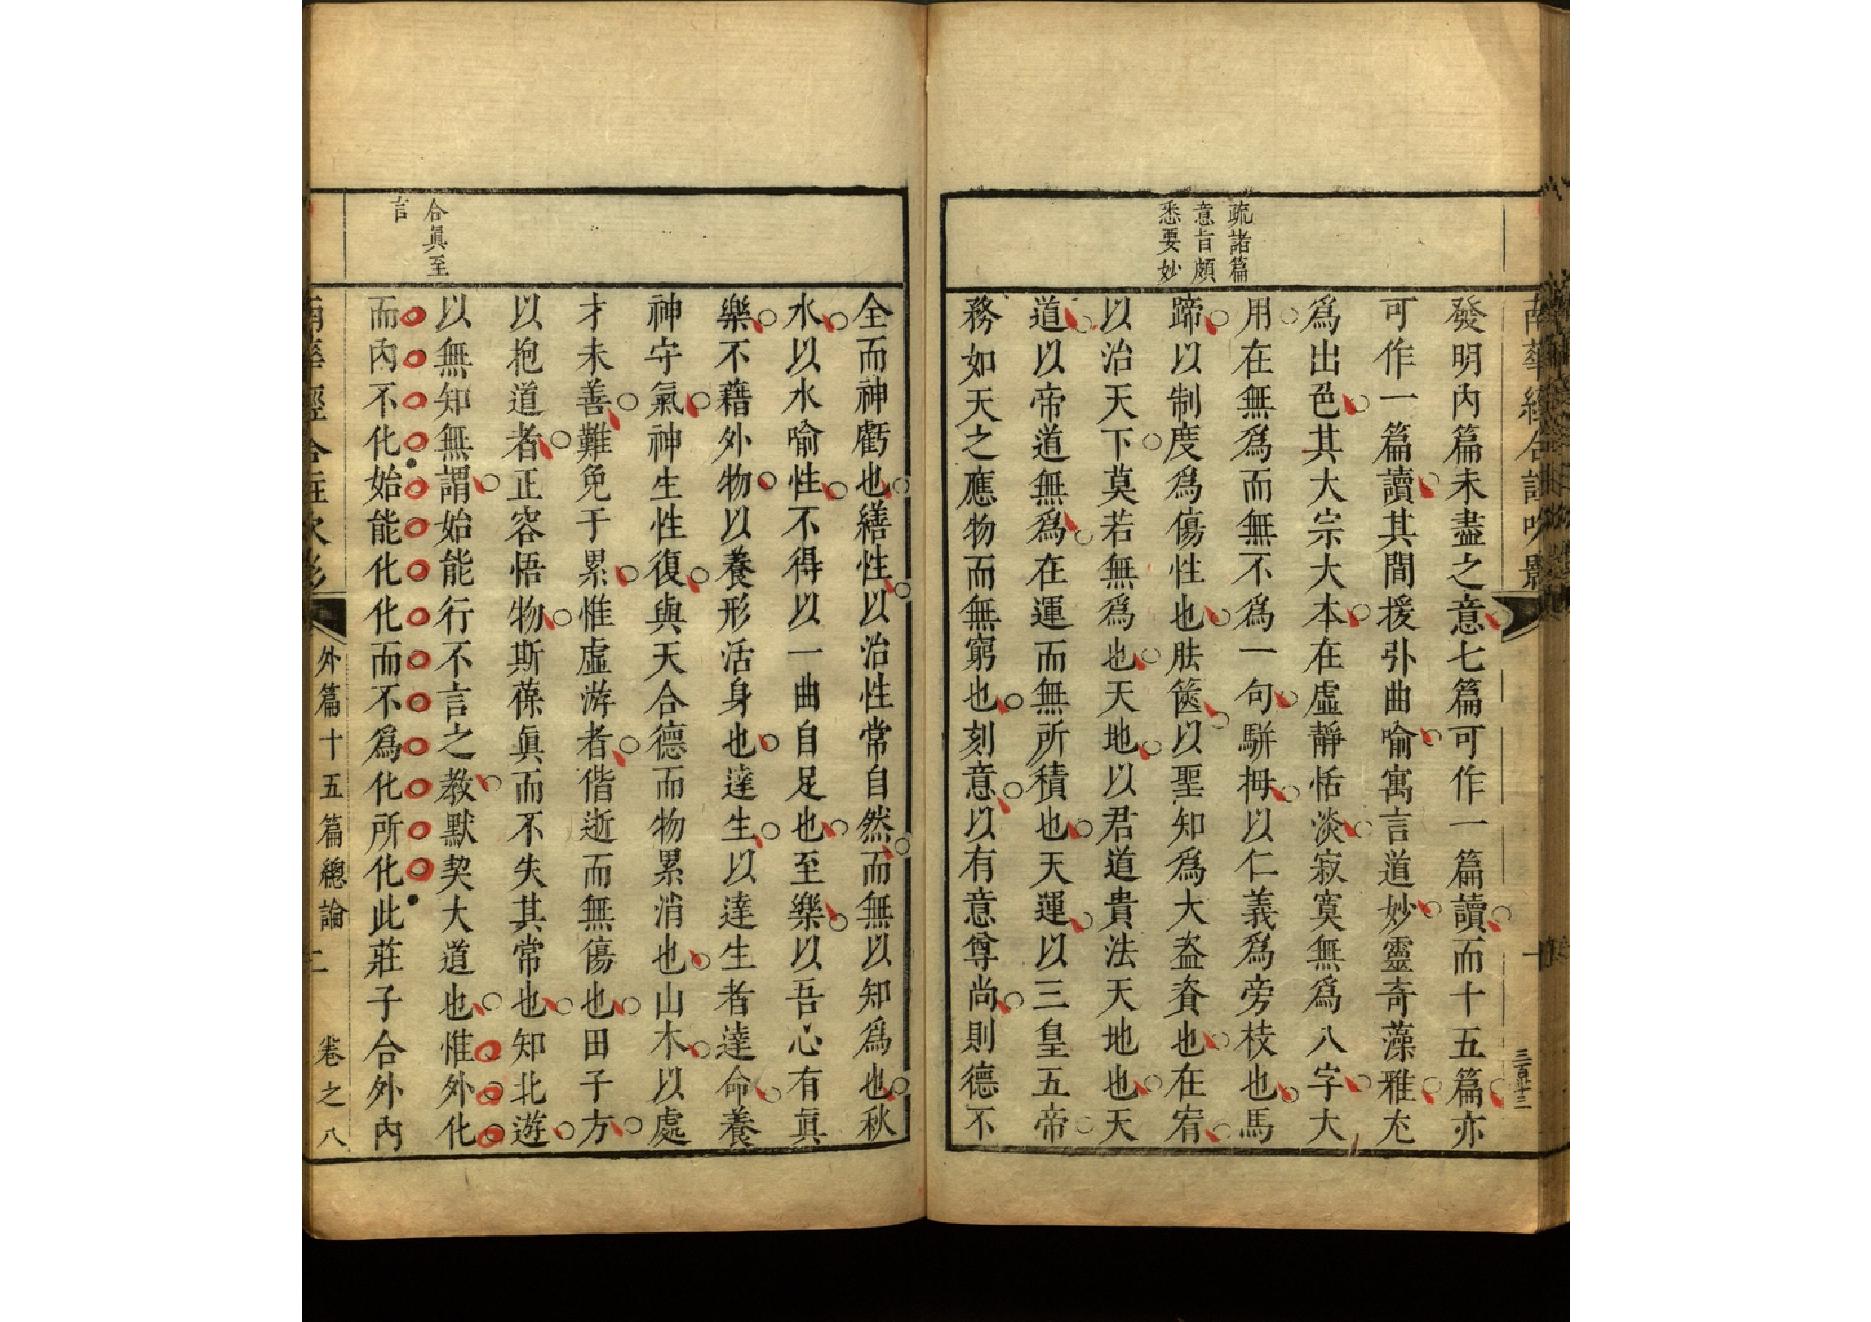 南華經合註吹影
三百廿三
疏諸篇
意旨頗
悉要妙
發明內篇未盡之意七篇可作一篇讀而十五篇亦
可作一篇讀其間援引曲喻寓言道妙靈奇藻雅充
爲出色其大宗大本在虛靜恬淡寂寞無爲八字大
用在無爲而無不爲一句駢拇以仁義爲旁枝也馬
蹄以制度爲傷性也胠篋以聖知爲大盜資也在宥
以治天下莫若無爲也天地以君道貴法天地也天
道以帝道無爲在運而無所積也天運以三皇五帝
務如天之應物而無窮也刻意以有意尊尚則德不
全而神虧也繕性以治性常自然而無以知爲也秋
水以水喻性不得以一曲自足也至樂以吾心有眞
樂不藉外物以養形活身也達生以達生者達命養
神守氣神生性復與天合德而物累消也山木以處
才未善難免于累惟虛游者偕逝而無傷也田子方
以抱道者正容悟物斯葆眞而不失其常也知北遊
以無知無謂始能行不言之教默契大道也惟外化
而內不化始能化化而不爲化所化此莊子合外內
合眞至
言
南華經合註吹影
外篇十五篇總論
二
卷之八